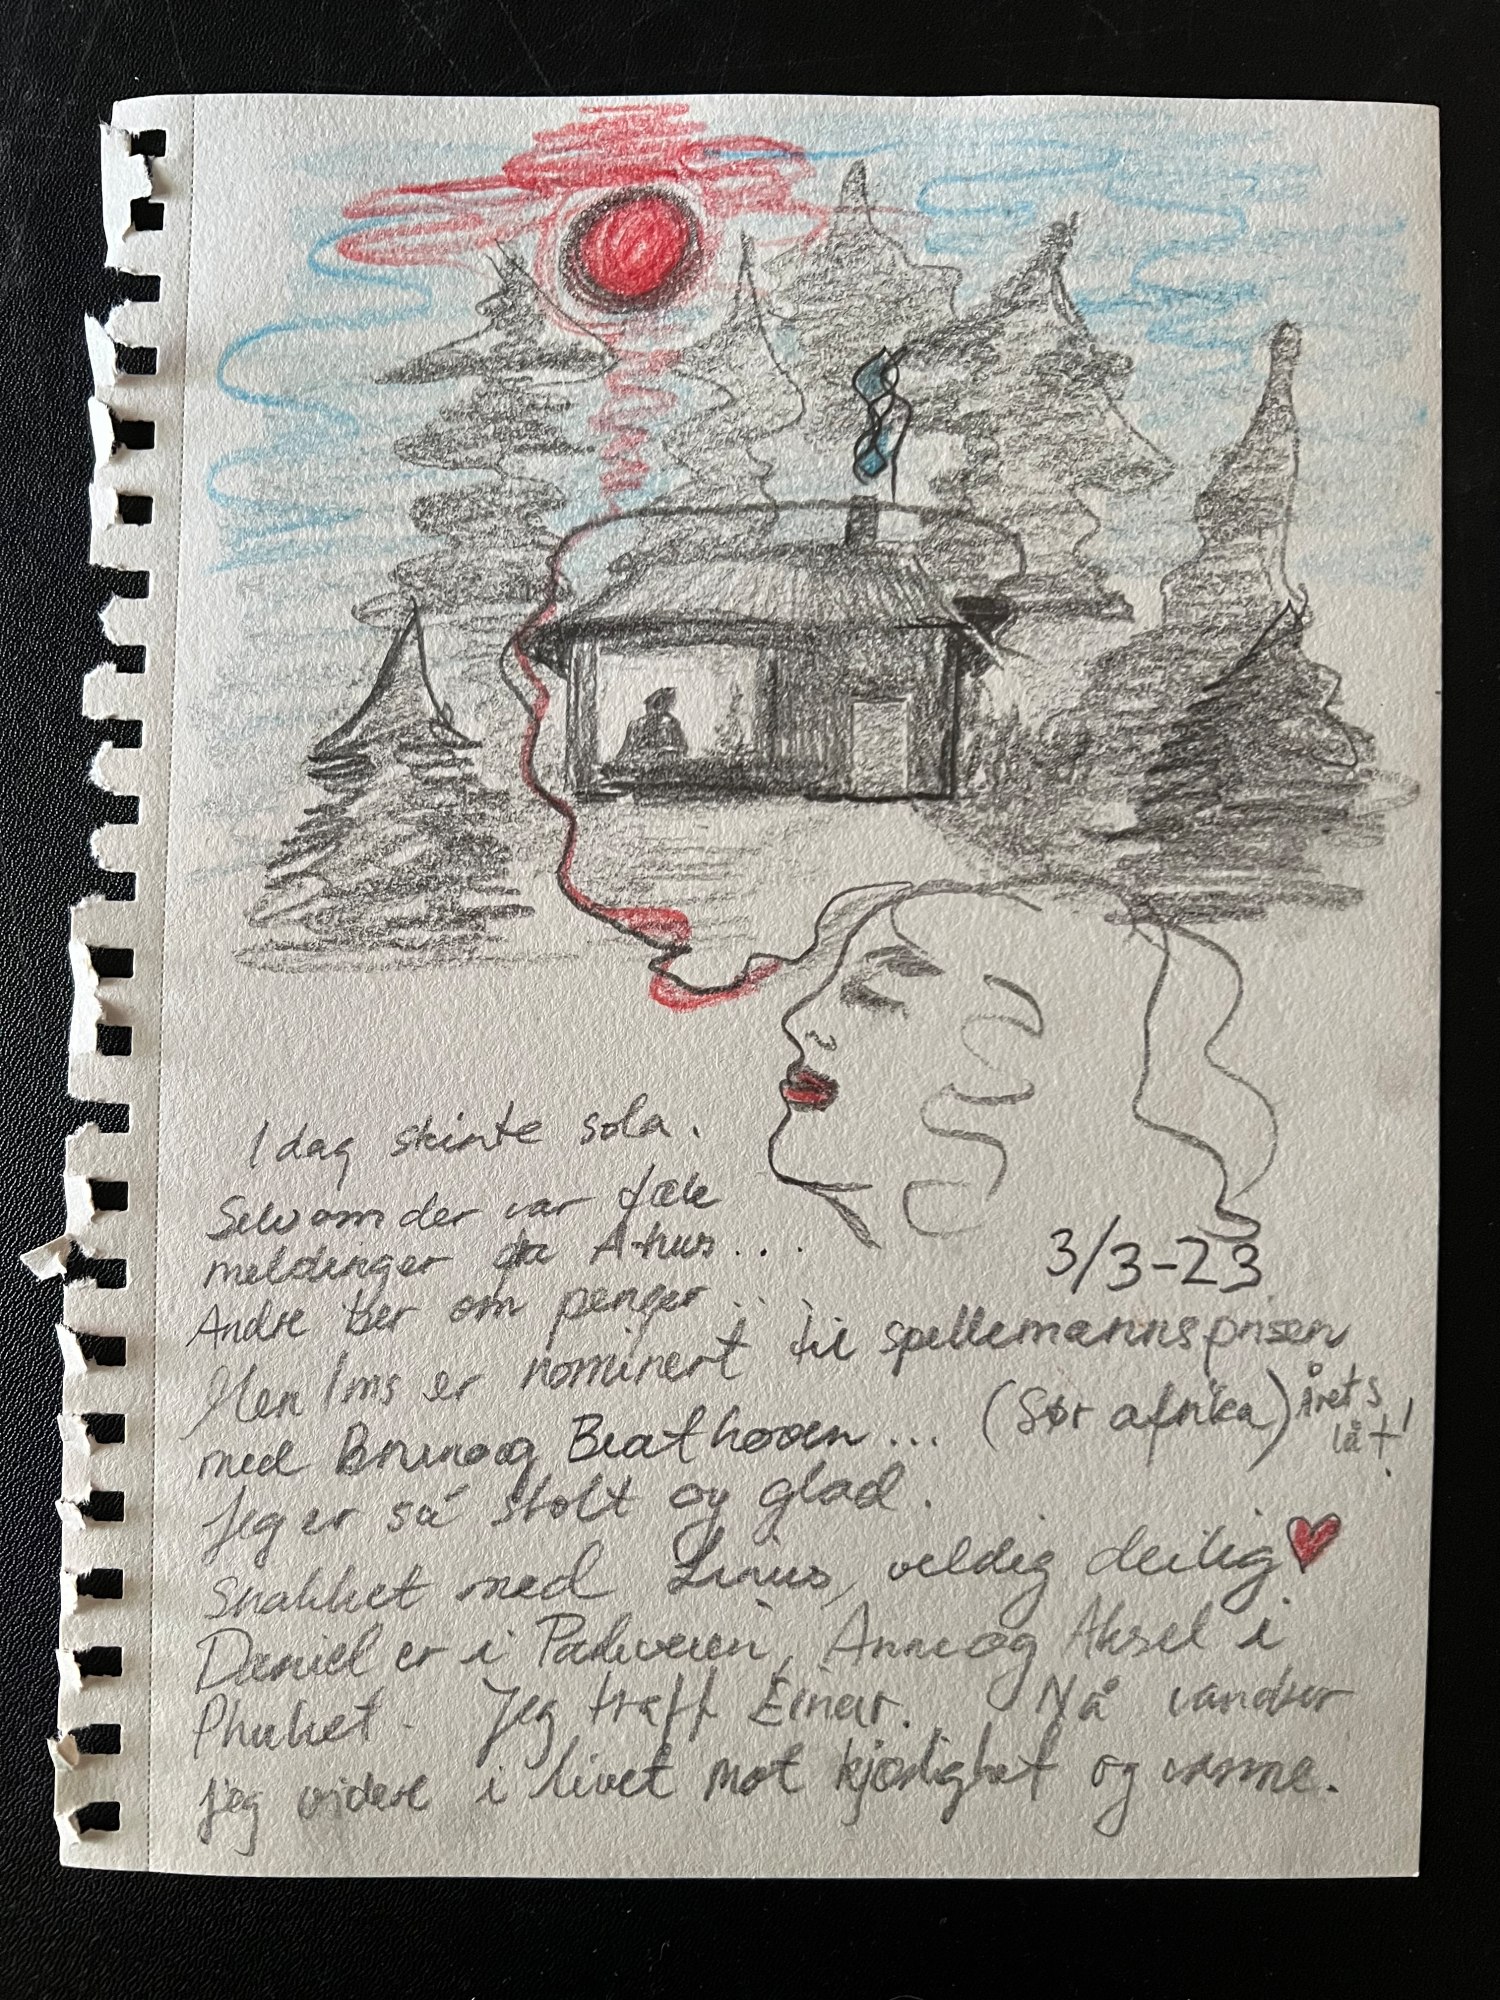 I dag skinte sola.
Selv om der var fæle
meldinger fra Ahus...
3/3-23
Andre ber om penger...
Men Ims er nominert til spellemannsprisen
med Bruno og Beathoven... (Sør afrika) årets
låt!
Jeg er så stolt og glad.
Snakket med Linus, veldig deilig
Daniel er i, Anne og Aksel i
Phuket. Jeg traff Einar. Nå vandrer
jeg videre i livet mot kjærlighet og varme.